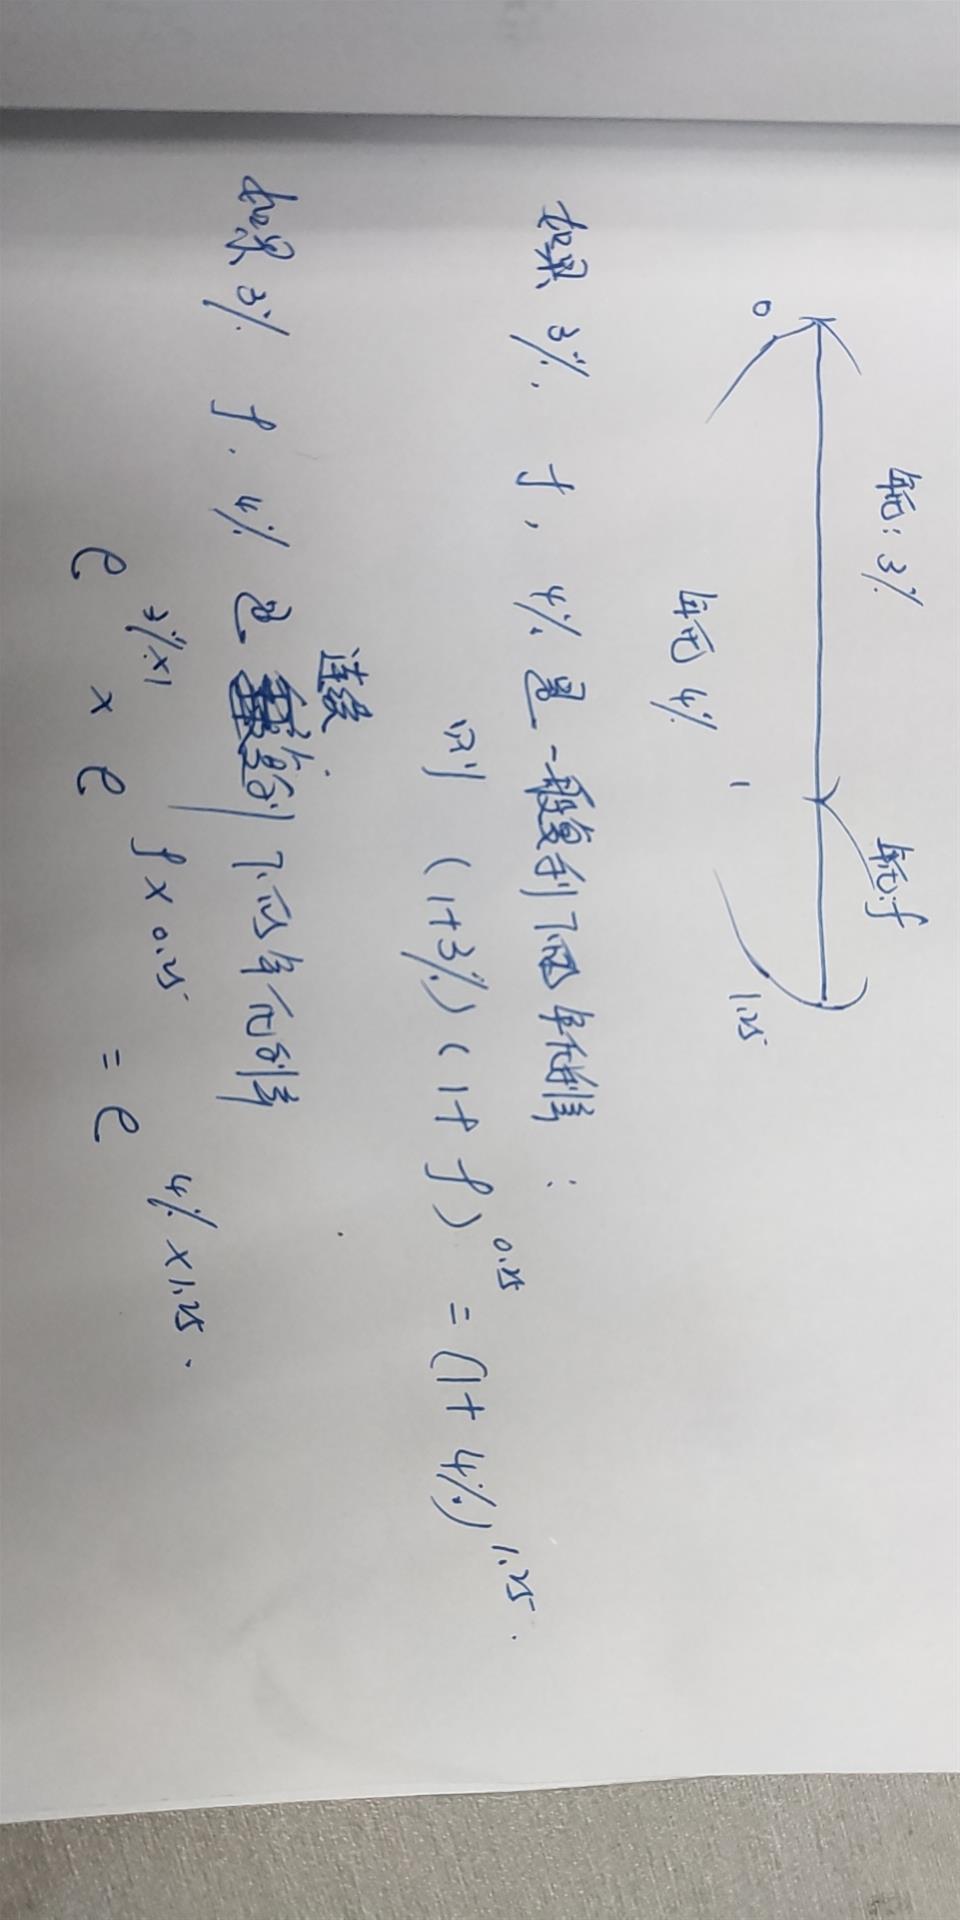 年化: 3%
年化: f
0
1
1.25
年化 4%
如果 3%, f, 4% 是一般复利下的年化利率:
则 (1+3%)(1+f)^0.25 = (1+4%)^1.25.
连续
如果 3% f. 4% 是 复利下的年化利率
e^3%×1 × e^f×0.25 = e^4%×1.25.